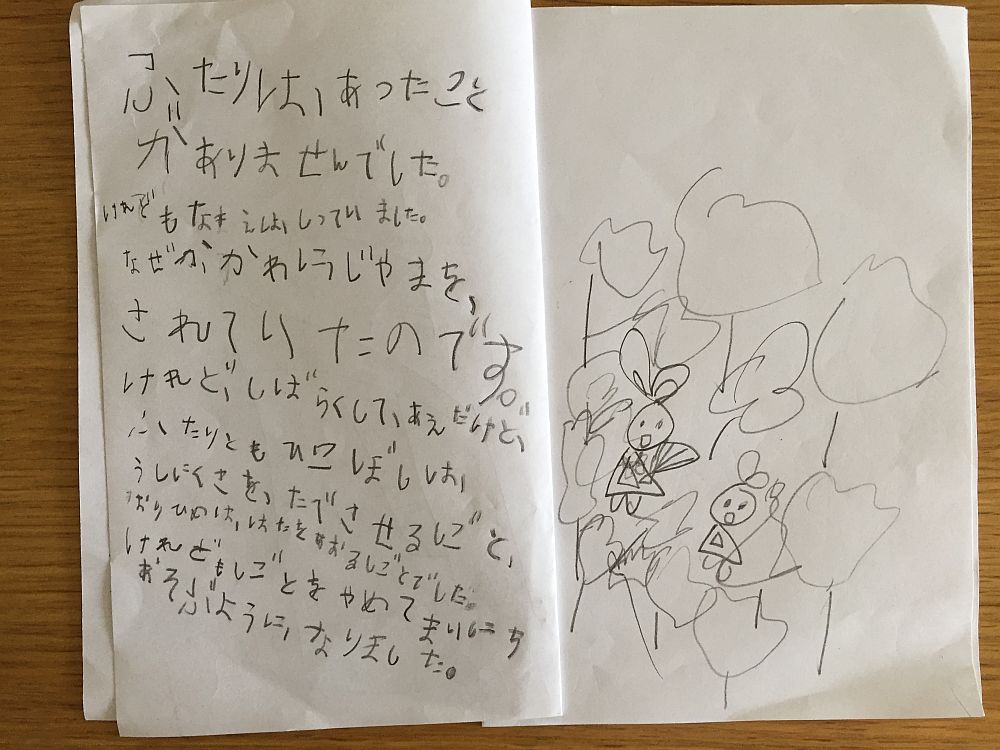 ふたりは、あったこと
がありませんでした。
けれどもなまえは、しっていました。
なぜかかわにうじゃまを、
されていたのです。
けれど、しばらくして、あえだけど、
ふたりともひこぼしは、
うしにくさを、たでさせるしごと、
ばりひめは、はたをおるしごとでした。
けれどもしごとをやめてまいにち
おそぶように、なりました。